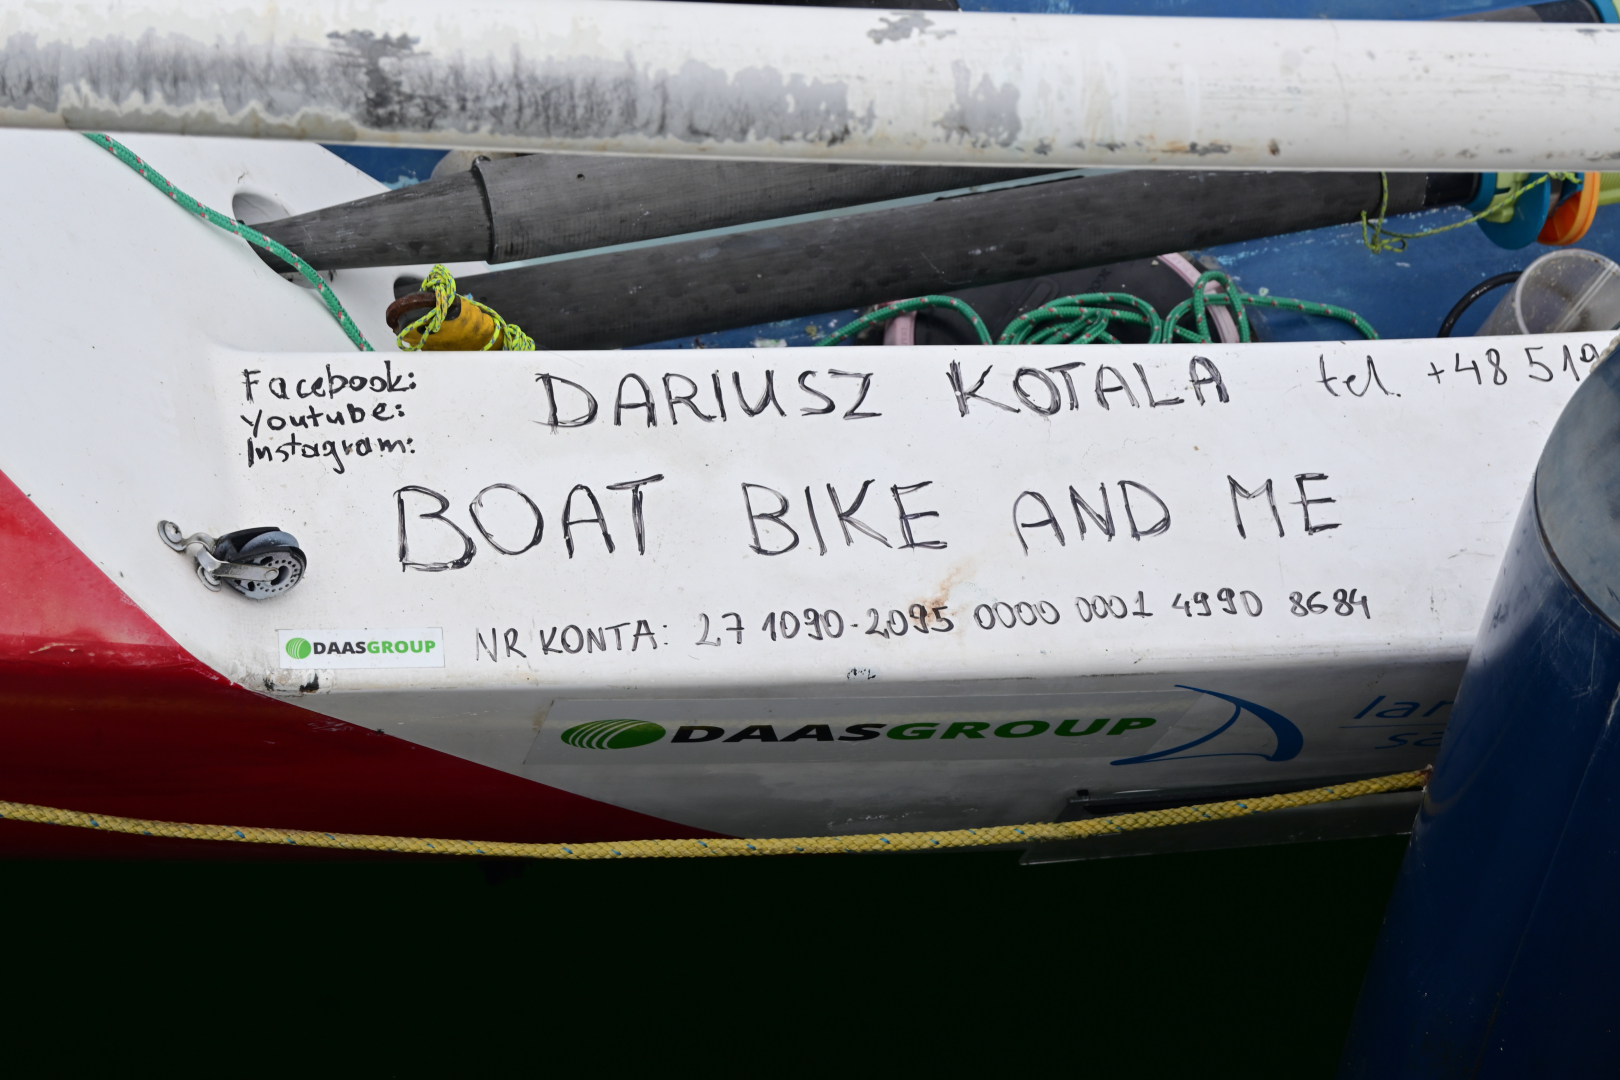 Facebook:
Youtube:
Instagram:
DARIUSZ KOTALA tel. +48 519
BOAT BIKE AND ME
DAASGROUP
NR KONTA: 27 1090-2095 0000 0001 4990 8684
DAASGROUP